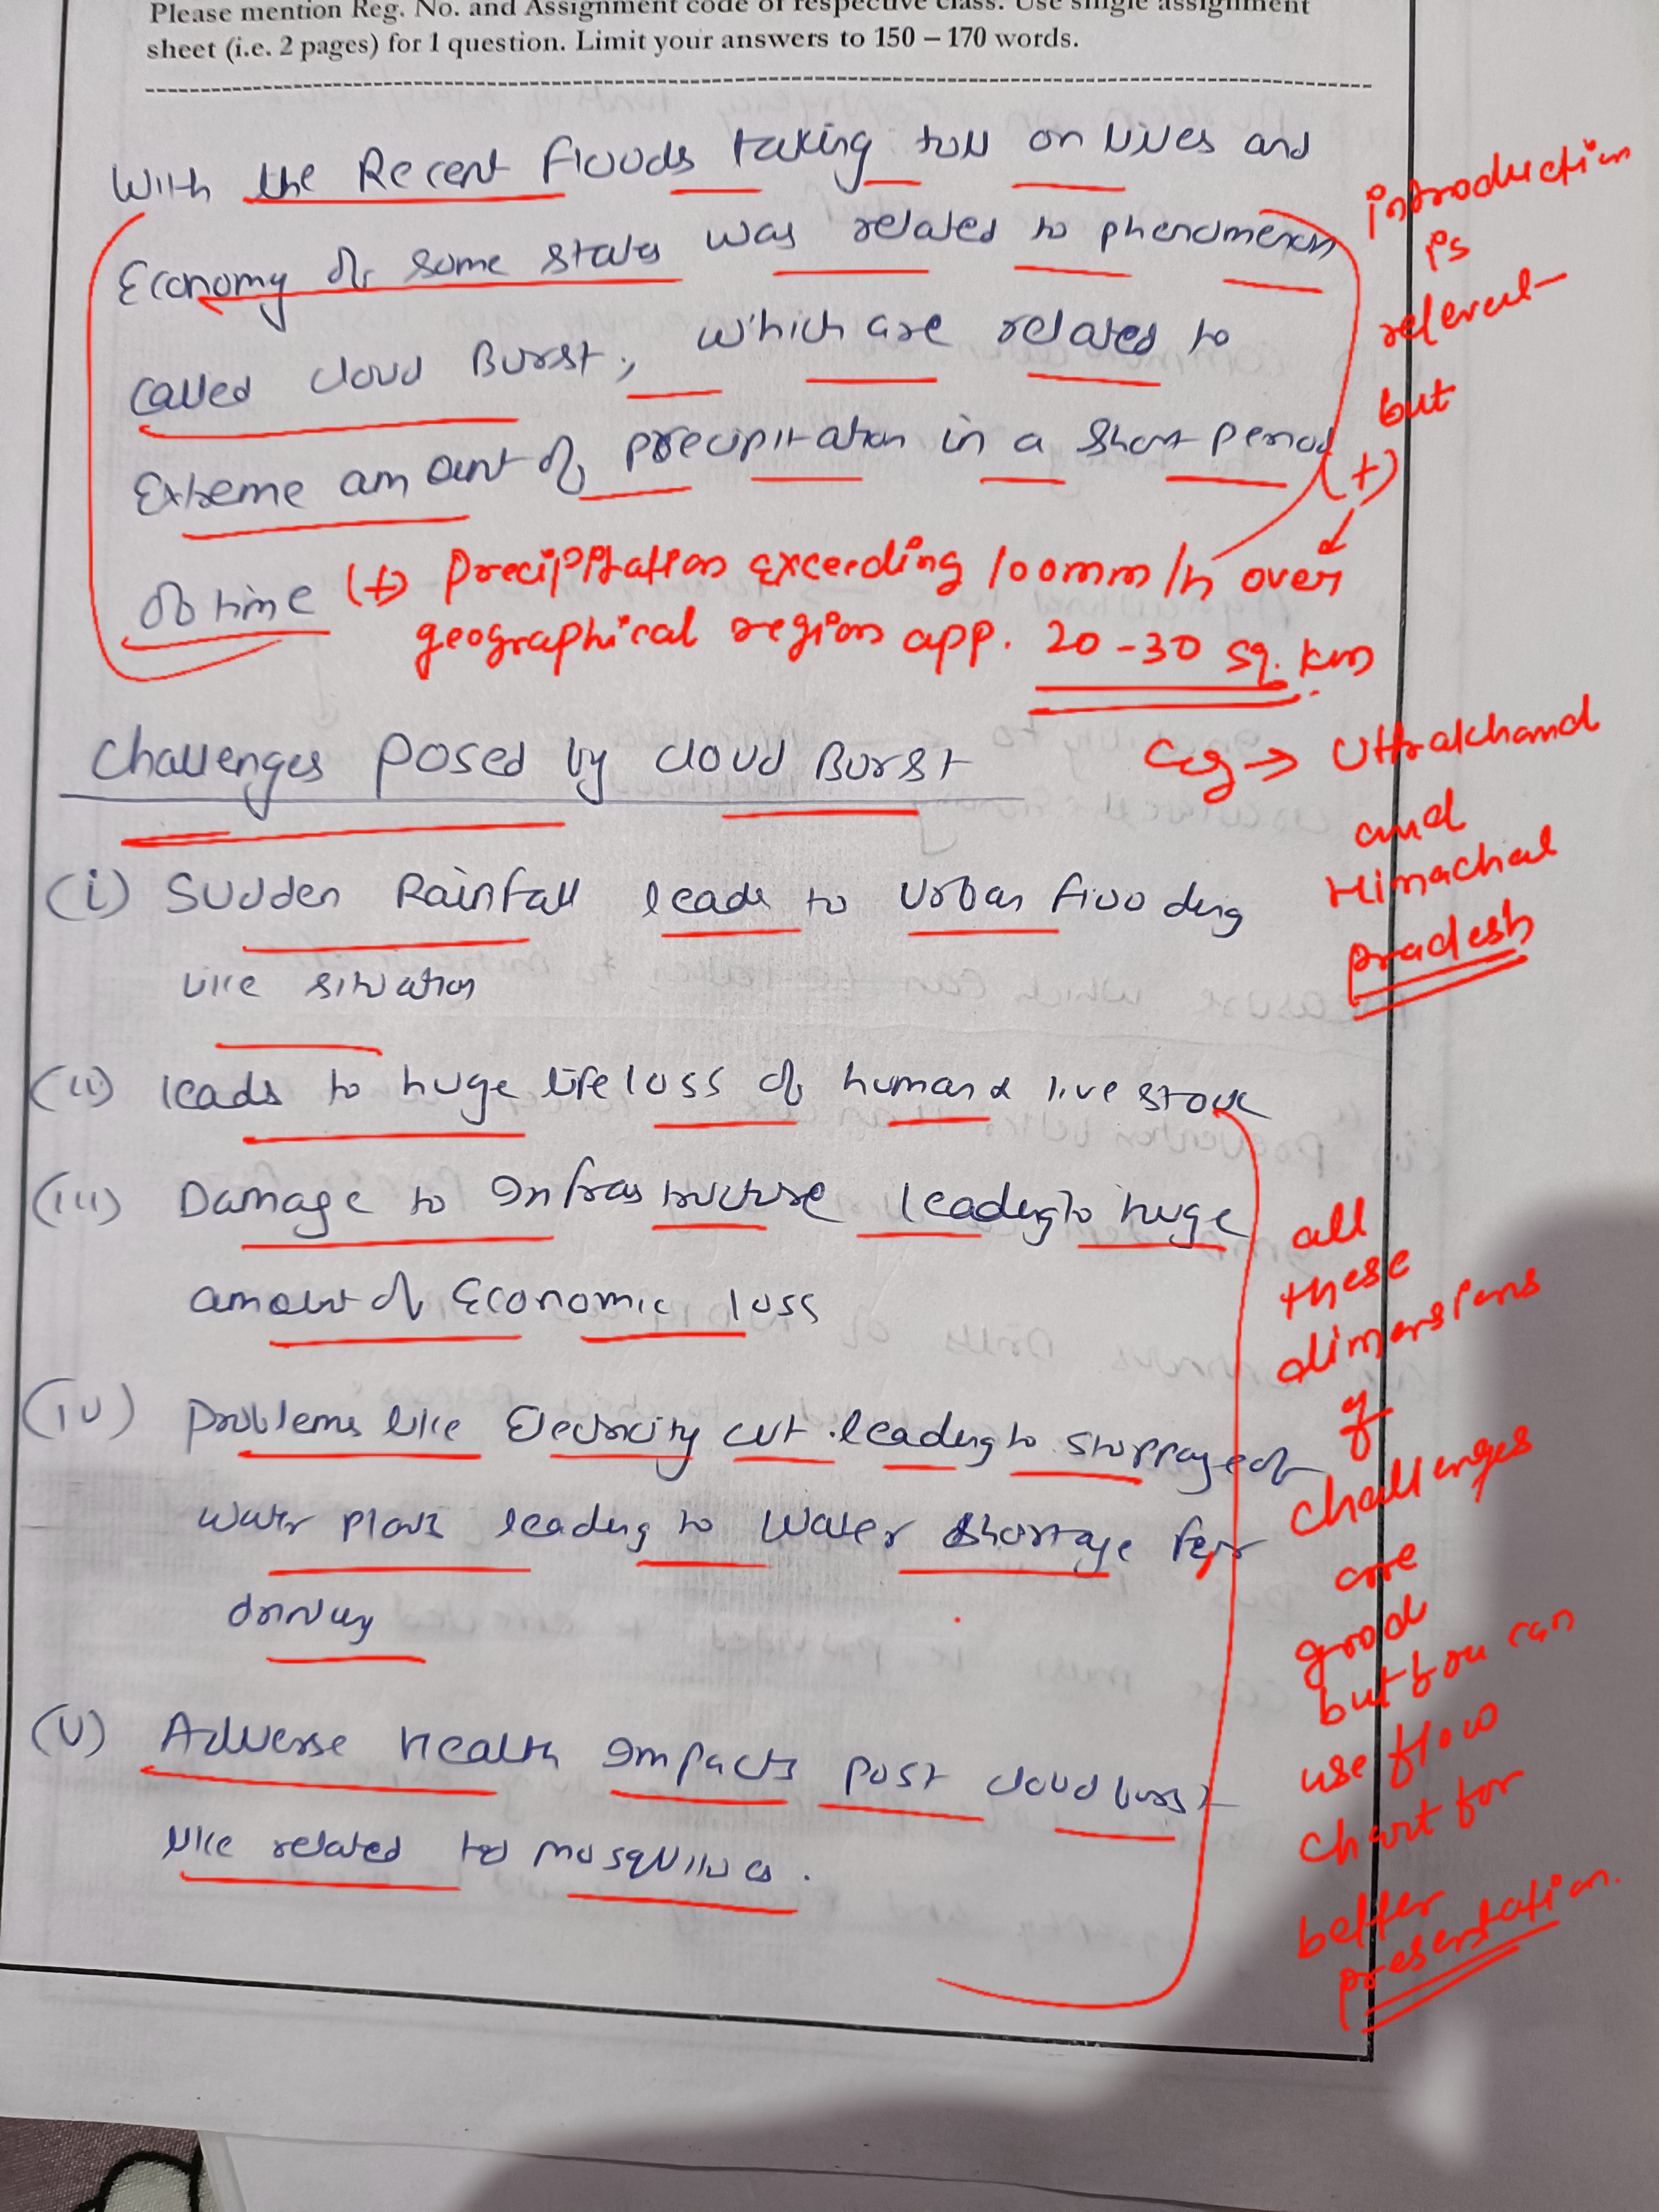 Please mention Reg. No. and Assignment code of respective class. Use single assignment
sheet (i.e. 2 pages) for 1 question. Limit your answers to 150 – 170 words.
With the Recent floods taking toll on lives and
Economy of some states was related to phenomenon
called cloud Burst, which are related to
Extreme amount of precipitation in a short period
of time
introduction
is
relevent
but
(+)
(+) Precipitation exceeding 100mm/h over
geographical region app. 20-30 sq. km
Challenges Posed by cloud Burst
eg → Uttrakhand
and
Himachal
pradesh
(i) Sudden Rainfall leads to Urban flooding
like situation
(ii) leads to huge life loss of human & live stock
(iii) Damage to Infrastructure leading to huge
amount of Economic loss
(iv) Problems like Electricity cut leading to stoppage of
water plants leading to water shortage for
drinking
(v) Adverse Health Impacts post cloud burst
like related to mosquitoes.
all
these
dimensions
of
challenges
are
good
but you can
use flow
chart for
better
presentation.